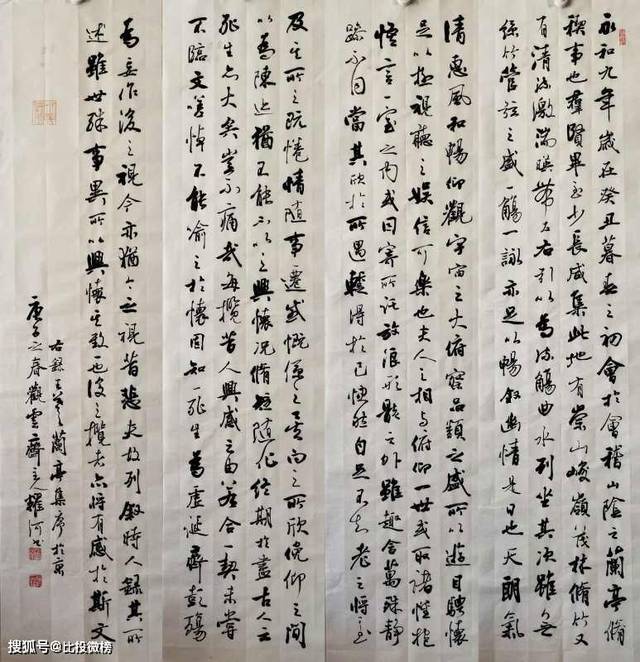 永和九年歲在癸丑暮春之初會於會稽山陰之蘭亭脩
禊事也羣賢畢至少長咸集此地有崇山峻嶺茂林脩竹又
有清流激湍暎帶左右引以爲流觴曲水列坐其次雖無
絲竹管弦之盛一觴一詠亦足以暢敘幽情是日也天朗氣
清惠風和暢仰觀宇宙之大俯察品類之盛所以遊目騁懷
足以極視聽之娛信可樂也夫人之相與俯仰一世或取諸懷抱
悟言室之內或因寄所託放浪形骸之外雖趣舍萬殊靜
躁不同當其欣於所遇暫得於己快然自足不知老之將至
及其所之既惓情隨事遷感慨係之矣向之所欣俛仰之間
以爲陳迹猶不能不以之興懷況脩短隨化終期於盡古人云
死生亦大矣豈不痛哉每攬昔人興感之由若合一契未嘗
不臨文嗟悼不能喻之於懷固知一死生爲虛誕齊彭殤
爲妄作後之視今亦猶今之視昔悲夫故列敘時人錄其所
述雖世殊事異所以興懷其致一也後之攬者亦將有感於斯文
右錄王羲之蘭亭集序於京
庚子之春觀雲齋主人耀河書
搜狐号@比投微榜